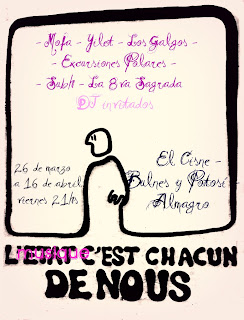 - Mofa - Yilet - Los Galgos -
- Excursiones Polares -
- Sub/t - La 8va Sagrada
DJ invitados
26 de marzo
a 16 de abril
viernes 21hs
El Cisne -
Bulnes y Potosí -
Almagro
musique C'EST CHACUN
DE NOUS